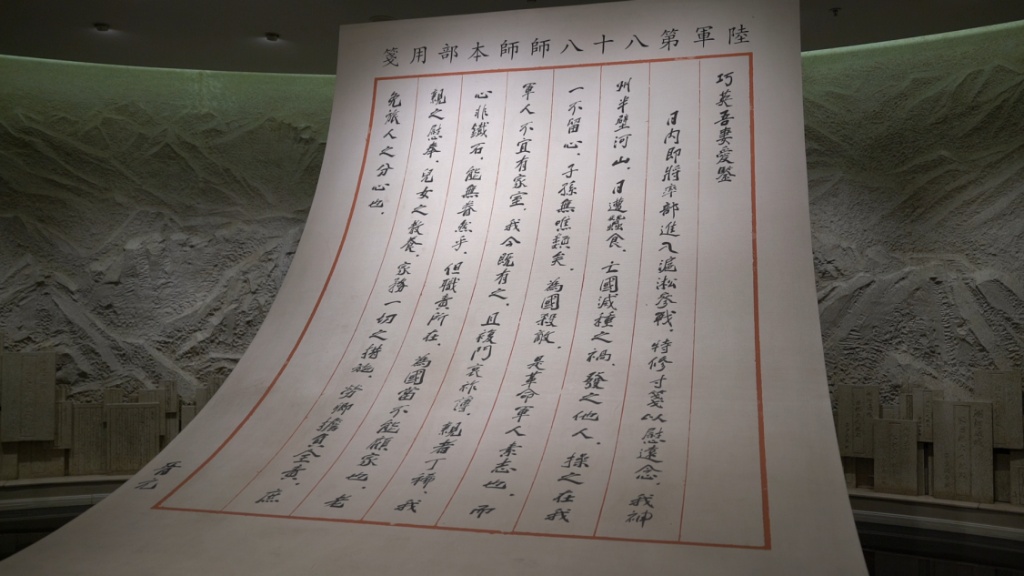 陸軍第八十八師師本部用箋
巧英吾妻愛鑒
日内即將率部進入滬淞參戰，特修寸箋以慰遠念，我神
州半壁河山，日遭蠶食，亡國滅種之禍，發之他人，操之在我
一不留心，子孫無噍類矣，為國殺敵，是革命軍人素志也，而
軍人不宜有家室，我今既有之，且後門衰祚薄，親者丁稀，我
心非鐵石，能無眷然乎，但職責所在，為國當不能顧家也，老
親之慰奉，兒女之教養，家務一切之措施，勞卿擔負全責，庶
免旅人之分心也，
晉元